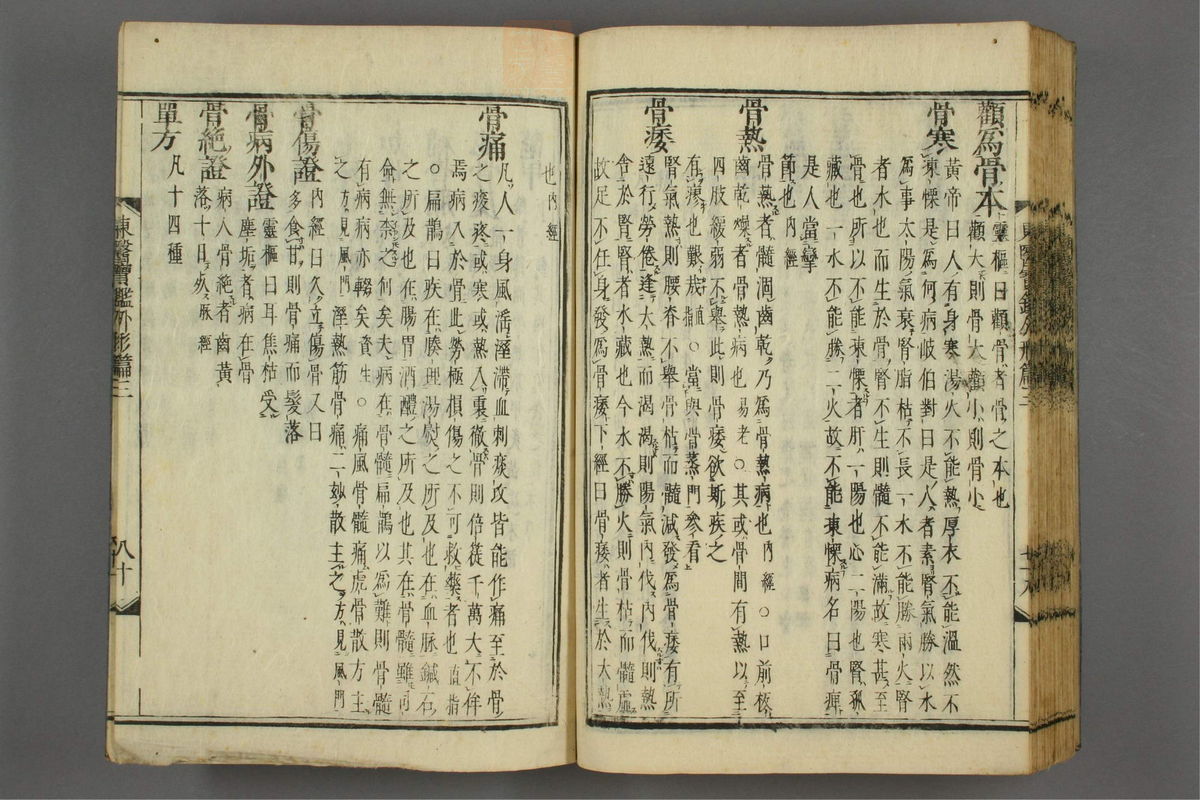 顴爲骨本 靈樞曰顴骨者骨之本也
顴大則骨大顴小則骨小
骨寒 黃帝曰人有身寒湯火不能熱厚衣不能溫然不
凍慄是爲何病岐伯對曰是人者素腎氣勝以水
爲事太陽氣衰腎脂枯不長一水不能勝兩火腎
者水也而生於骨腎不生則髓不能滿故寒甚至
骨也所以不能凍慄者肝一陽也心二陽也腎孤
藏也一水不能勝二火故不能凍慄病名曰骨痺
是人當攣
節也內經
骨熱 骨熱者髓涸齒乾乃爲骨熱病也內經○口前核
齒乾燥者骨熱病也易老○其或骨間有熱以至
四肢緩弱不擧此則骨痿欲斯疾之
有瘳也艱哉直指○當與骨蒸門參看
骨痿 腎氣熱則腰脊不擧骨枯而髓減發爲骨痿有所
遠行勞倦逢大熱而渴渴則陽氣內伐內伐則熱
舍於腎腎者水藏也今水不勝火則骨枯而髓虛
故足不任身發爲骨痿下經曰骨痿者生於大熱
東醫寶鑑外形篇三
也內經
骨痛 凡人一身風濕滯血刺痰攻皆能作痛至於骨
之痠疼或寒或熱入裏徹骨則倍蓰千萬大不侔
焉病入於骨此勞極損傷之不可救藥者也直指
○扁鵲曰疾在腠理湯熨之所及也在血脉鍼石
之所及也在腸胃酒醴之所及也其在骨髓雖司
命無奈之何矣夫病在骨髓扁鵲以爲難則骨髓
有病病亦輟矣資生○痛風骨髓痛虎骨散方主
之方見風門濕熱筋骨痛二妙散主之方見風門
骨傷證 內經曰久立傷骨又曰
多食甘則骨痛而髮落
骨病外證 靈樞曰耳焦枯受
塵垢者病在骨
骨絕證 病人骨絕者齒黃
落十日死脉經
單方 凡十四種
東醫寶鑑外形篇三
八十